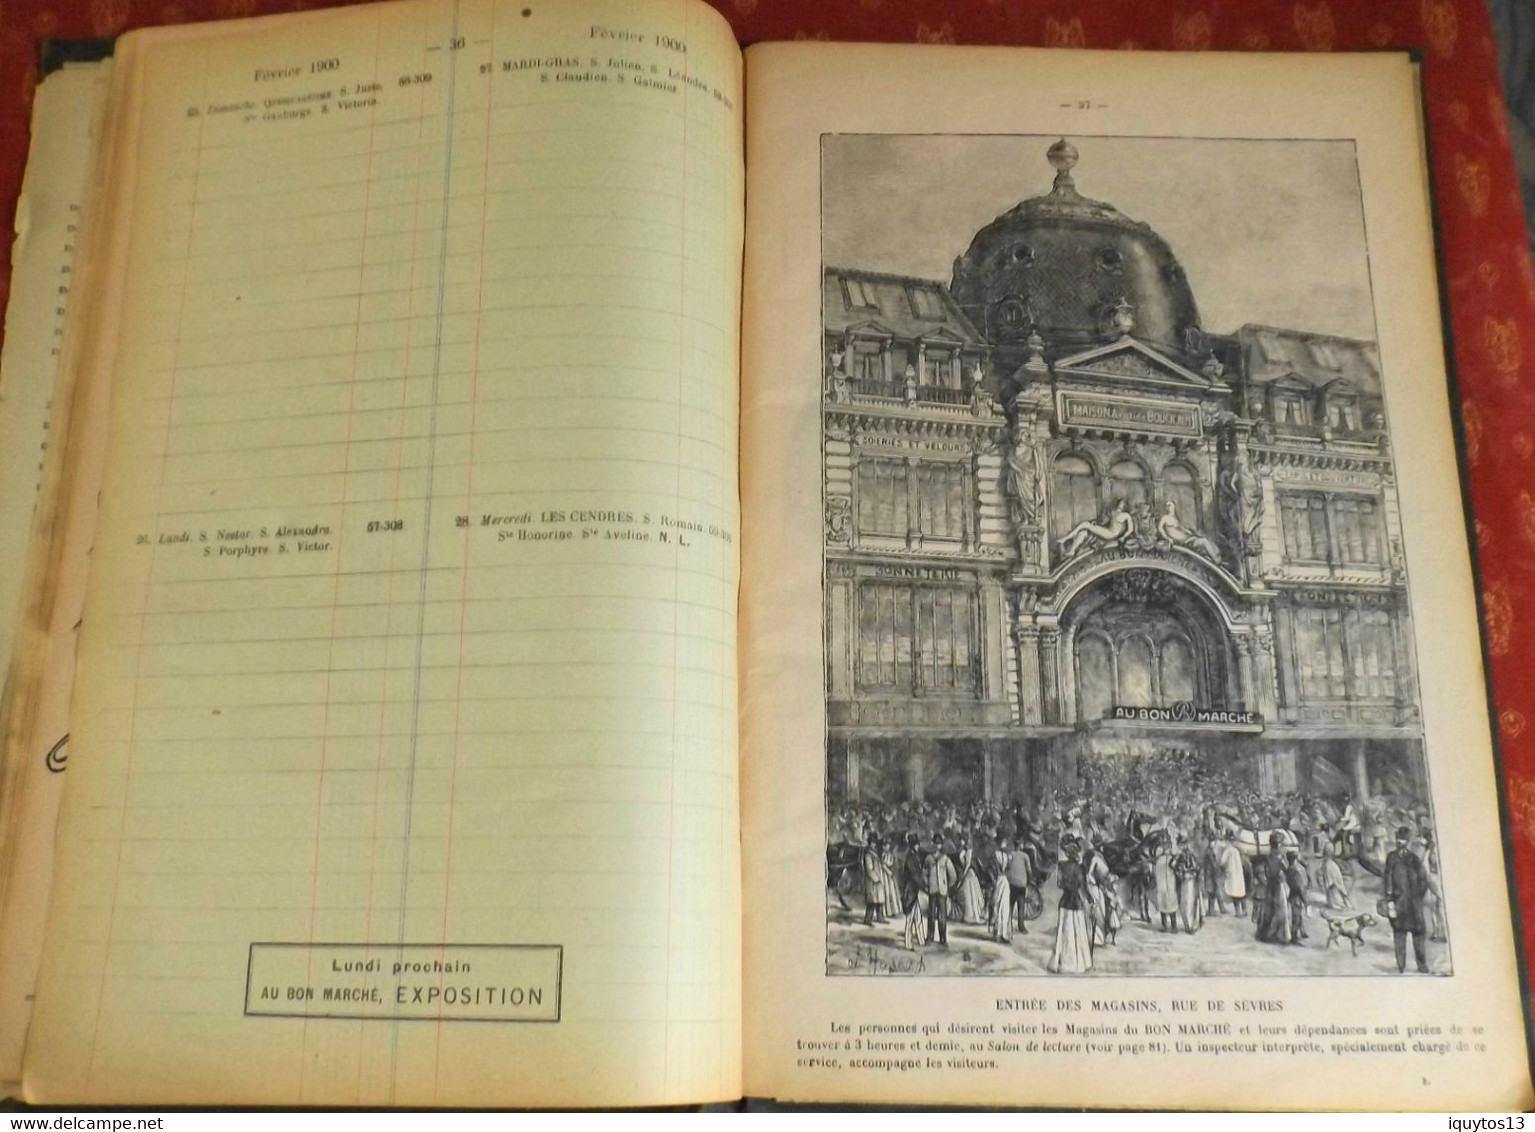 Février 1900
— 36 —
Février 1900
25. Dimanche. QUINQUAGÉSIME. S. Juste. 56-309
Ste Gauburge. S. Victorin.
27. MARDI-GRAS. S. Julien. S. Léandre.
S. Claudien. S. Galmier.
26. Lundi. S. Nestor. S. Alexandre. 57-308
S. Porphyre. S. Victor.
28. Mercredi. LES CENDRES. S. Romain. 59-306
Ste Honorine. Ste Aveline. N. L.
Lundi prochain
AU BON MARCHÉ, EXPOSITION
— 37 —
MAISON BOUCICAUT
SOIERIES ET VELOURS
AU BON MARCHÉ
BONNETERIE
AU BON MARCHÉ
ENTRÉE DES MAGASINS, RUE DE SÈVRES
Les personnes qui désirent visiter les Magasins du BON MARCHÉ et leurs dépendances sont priées de se
trouver à 3 heures et demie, au Salon de lecture (voir page 81). Un inspecteur interprète, spécialement chargé de ce
service, accompagne les visiteurs.
delcampe.net
iquytos13